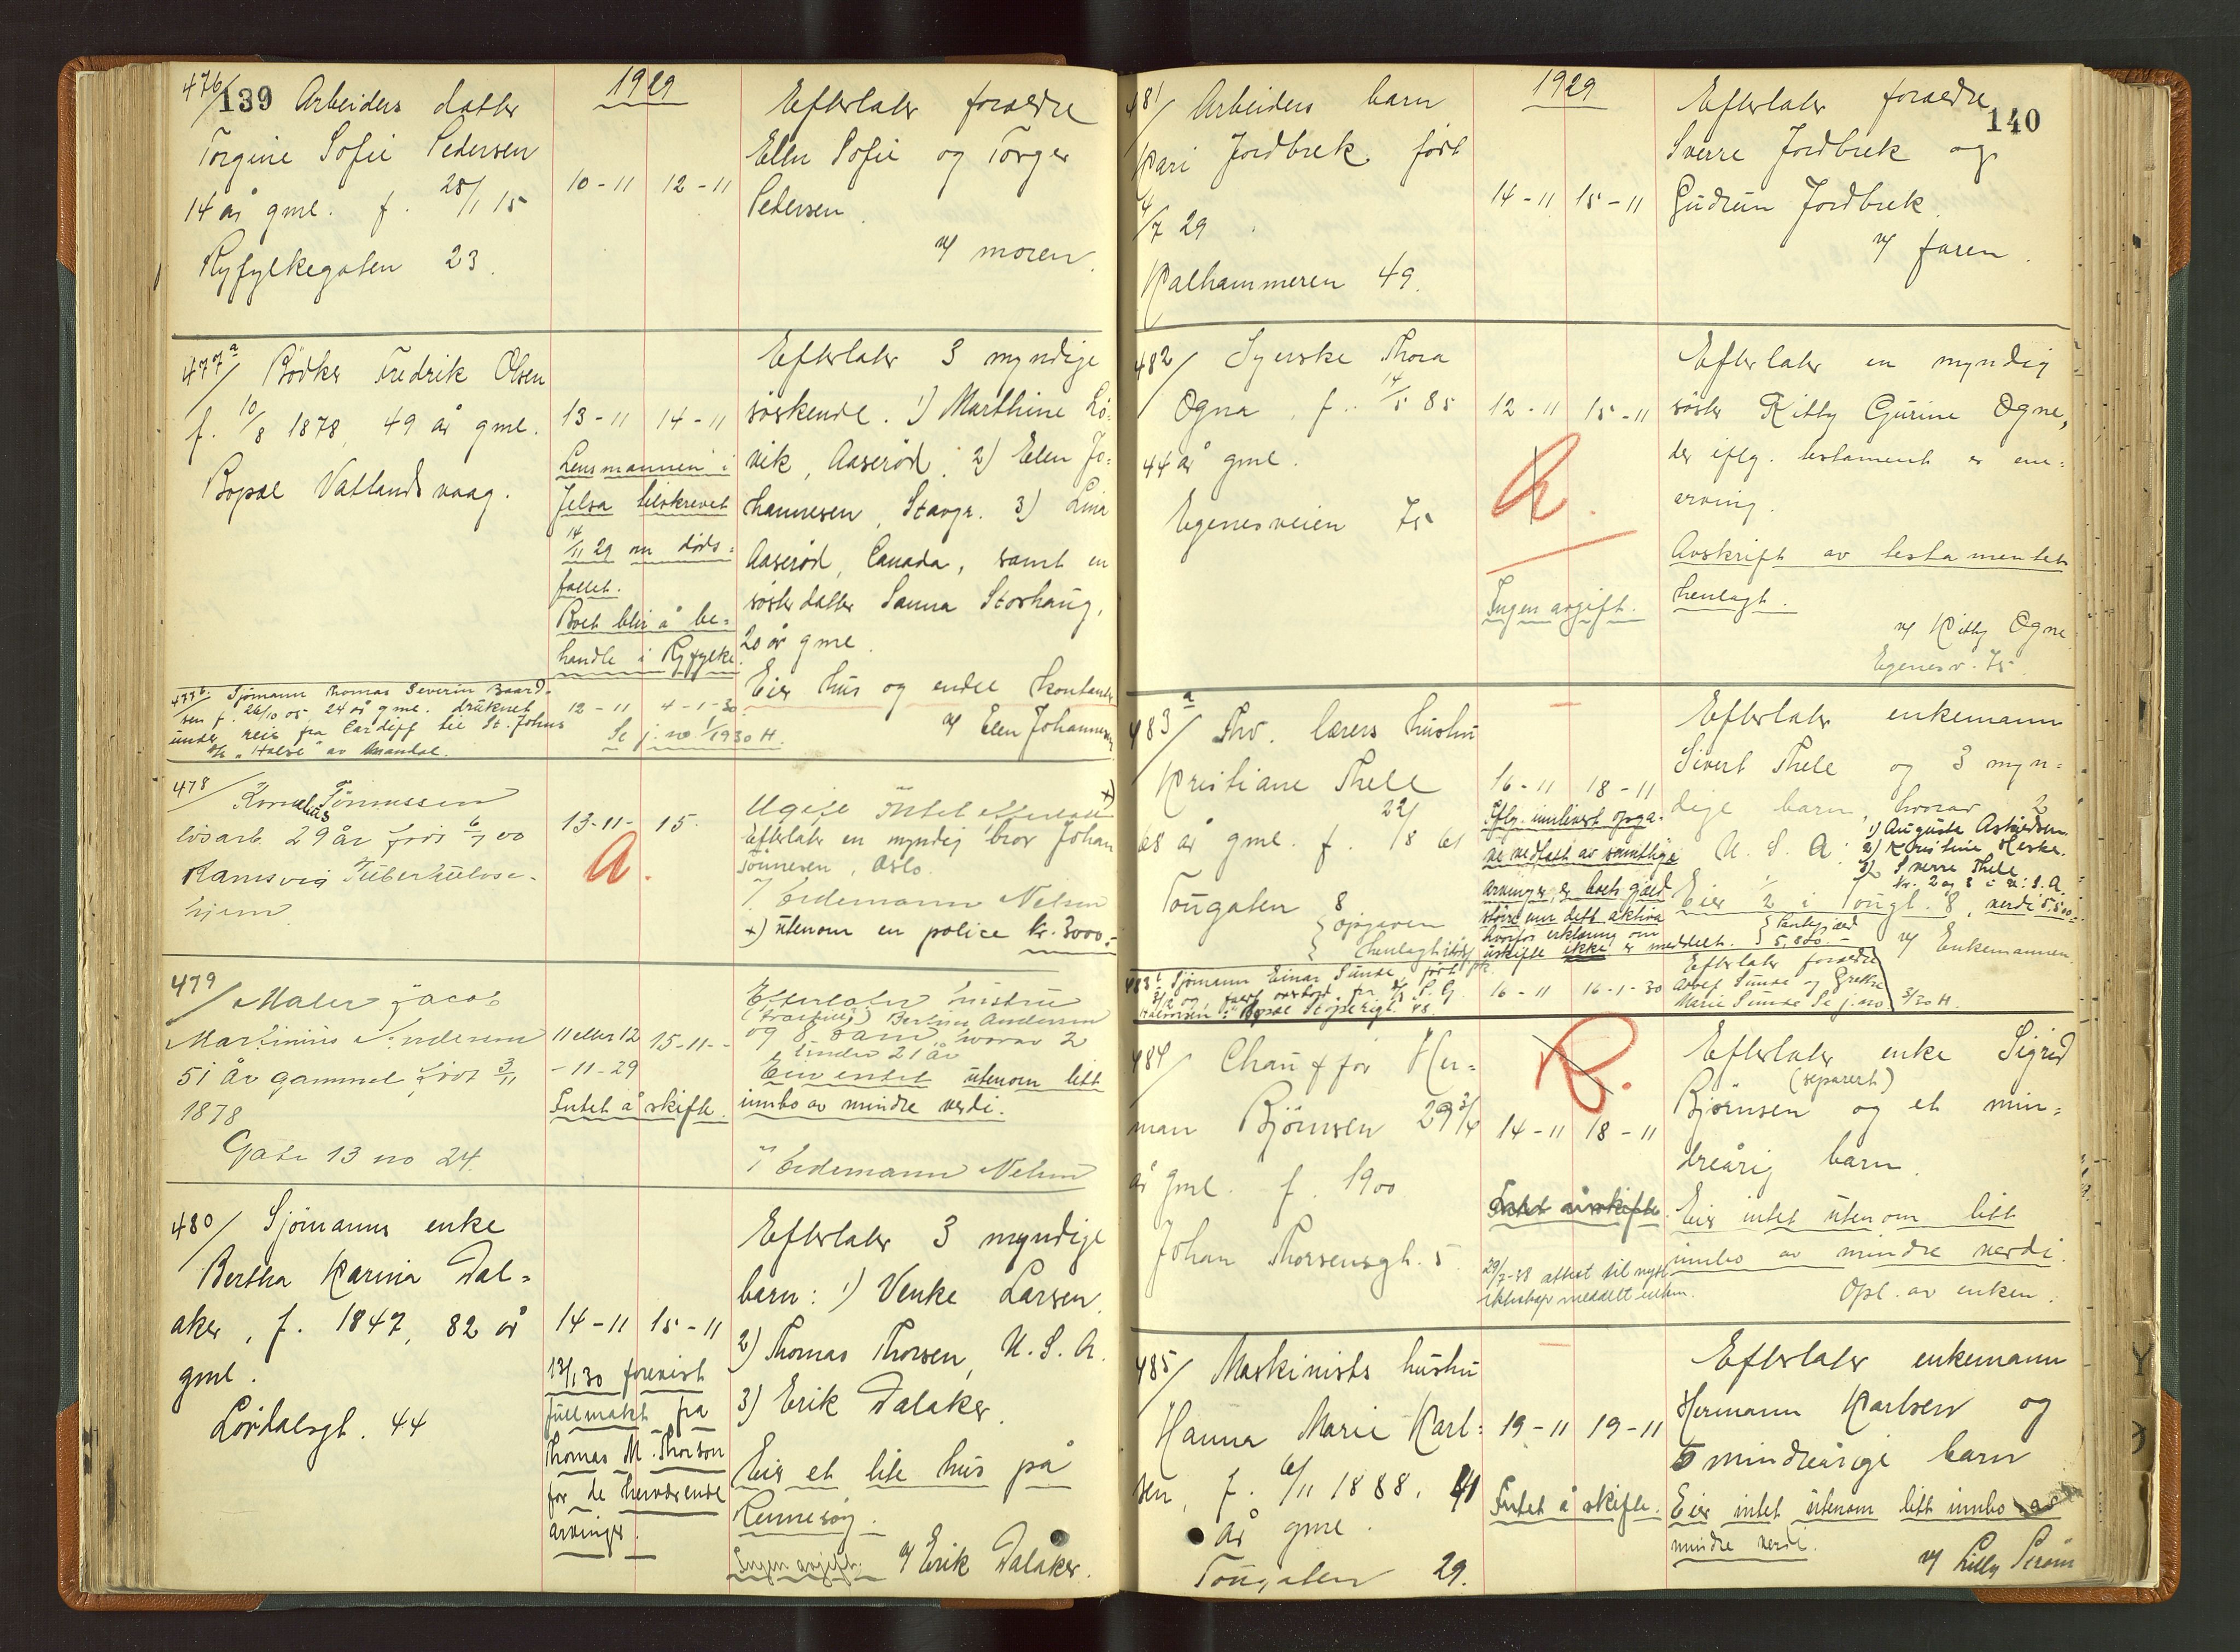 139
1929
476/ Arbeiders datter
Torgine Sofie Pedersen
14 år gml. f. 28/1 15
Ryfylkegaten 23.
10-11 12-11
Efterlater foraedre
Elen Sofie og Torger
Pedersen.
v/ moren.
477a/ Bödker Fredrik Olsen
f. 10/8 1878, 49 år gml.
Bopæl Vatlandsvaag.
13-11 14-11
Lensmannen i
Jelsa tilskrevet
14/11 29 om döds-
fallet.
Boet blir å be-
handle i Ryfylke.
Efterlater 3 myndige
söskende. 1) Marthine Lö-
vik, Aaseröd. 2) Elen Jo-
hannesen, Stavgr. 3) Lina
Aaseröd, Canada, samt en
sösterdatter Sanna Storhaug,
20 år gml.
Eier hus og endel kontanter
v/ Elen Johannesen
477b/ Sjömann Thomas Severin Baard-
sen f. 26/10 05, 24 år gml. druknet
under reis fra Cardiff til St. Johns
av Mandal.
12-11 4-1-30
Se j. no 1/1930 H.
478/ Kornelius Tönnessen
lösarb. 29 år født 6/7 00
Ramsvig Tuberkulose-
hjem
13-11- 15-
A.
Ugift Intet efterlatt +)
Efterlater en myndig bror Johan
Tönnesen, Oslo.
v/ Eedemann Nelsen
+) utenom en police kr. 3000.-
479/ Maler Jacob
Martinius Andersen
51 år gammel født 3/11
1878
Gate 13 no 24.
11 eller 12 15-11-
-11-29
Intet å skifte.
Efterlater hustru
Berlina Andersen
og 8 barn hvorav 2
under 21 år
Eier intet utenom litt
innbo av mindre verdi.
v/ Eedemann Nelsen
480/ Sjömanns enke
Bertha Karina Dal-
aker, f. 1847, 82 år
gml.
Lövdalsgt. 44
14-11 15-11
13/1 30 forevist
fullmakt fra
Thomas M. Thorson
for de herværende
arvinger.
Efterlater 3 myndige
barn: 1) Venke Larsen
2) Thomas Thorsen, U.S.A.
3) Erik Dalaker.
Eier et lite hus på
Rennesöy.
Ingen avgift. v/ Erik Dalaker.
140
1929
481/ Arbeiders barn
Kari Jordbrek født
4/7 29.
Kalhammeren 49.
14-11 15-11
Efterlater foraedre
Sverre Jordbrek og
Gudrun Jordbrek.
v/ faren.
482/ Syerske Thora
Ogna, f. 14/5 85
44 år gml.
Egenesveien 75
12-11 15-11
A.
Ingen avgift.
Efterlater en myndig
söster Kitty Gurine Ogne,
der iflg. testament er ene-
arving.
Avskrift av testamentet
henlagt.
v/ Kitty Ogne
Egenesv. 75
483a/ Fhv. lærers hustru
Kristiane Thele
68 år gml. f. 22/8 61
Tougaten 8
opgaven
henlagt
16-11 18-11
Iflg. innlevert opga-
ve vedtatt av samtlige
arvinger, er boets gjæld
större enn dets aktiva
hvorfor erklæring om
uskifte ikke er meddelt.
Efterlater enkemann
Sivert Thele og 3 myn-
dige barn, hvorav 2
U.S.A.
1) Auguste Askildsen.
2) Kristine Heske.
3) Sverre Thele
Nr. 2 og 3 i U.S.A.
Eier 1/2 i Tougt. 8, verdi 5,500.-
Pantegjæld
5,800.-
v/ Enkemannen.
483b/ Sjömann Einar Sunde, født
3/12 09, faldt overbord fra S. G.
Halvorsen. Bopæl Støperigt. 48.
16-11 16-1-30
Efterlater foraedre
Adolf Sunde og Grethe
Marie Sunde Se j. no 3/30 H.
484/ Chauffør Her-
man Björnsen 29 3/4
år gml. f. 1900
Johan Thorsensgt. 5
B.
14-11 18-11
Intet å skifte.
29/7-38 attest til nytt
ekteskap meddelt enken.
Efterlater enke Sigrid
(separert)
Björnsen og et min-
dreårig barn.
Eier intet utenom litt
innbo av mindre verdi.
Opl. av enken.
485/ Maskinists hustru
Hanna Marie Karl-
sen, f. 6/11 1888, 41
år gml.
Tougaten 29.
19-11 19-11
Intet å skifte.
Efterlater enkemann
Hermann Karlsen og
5 mindreårige barn
Eier intet utenom litt innbo av
mindre verdi.
v/ Lilly Ström